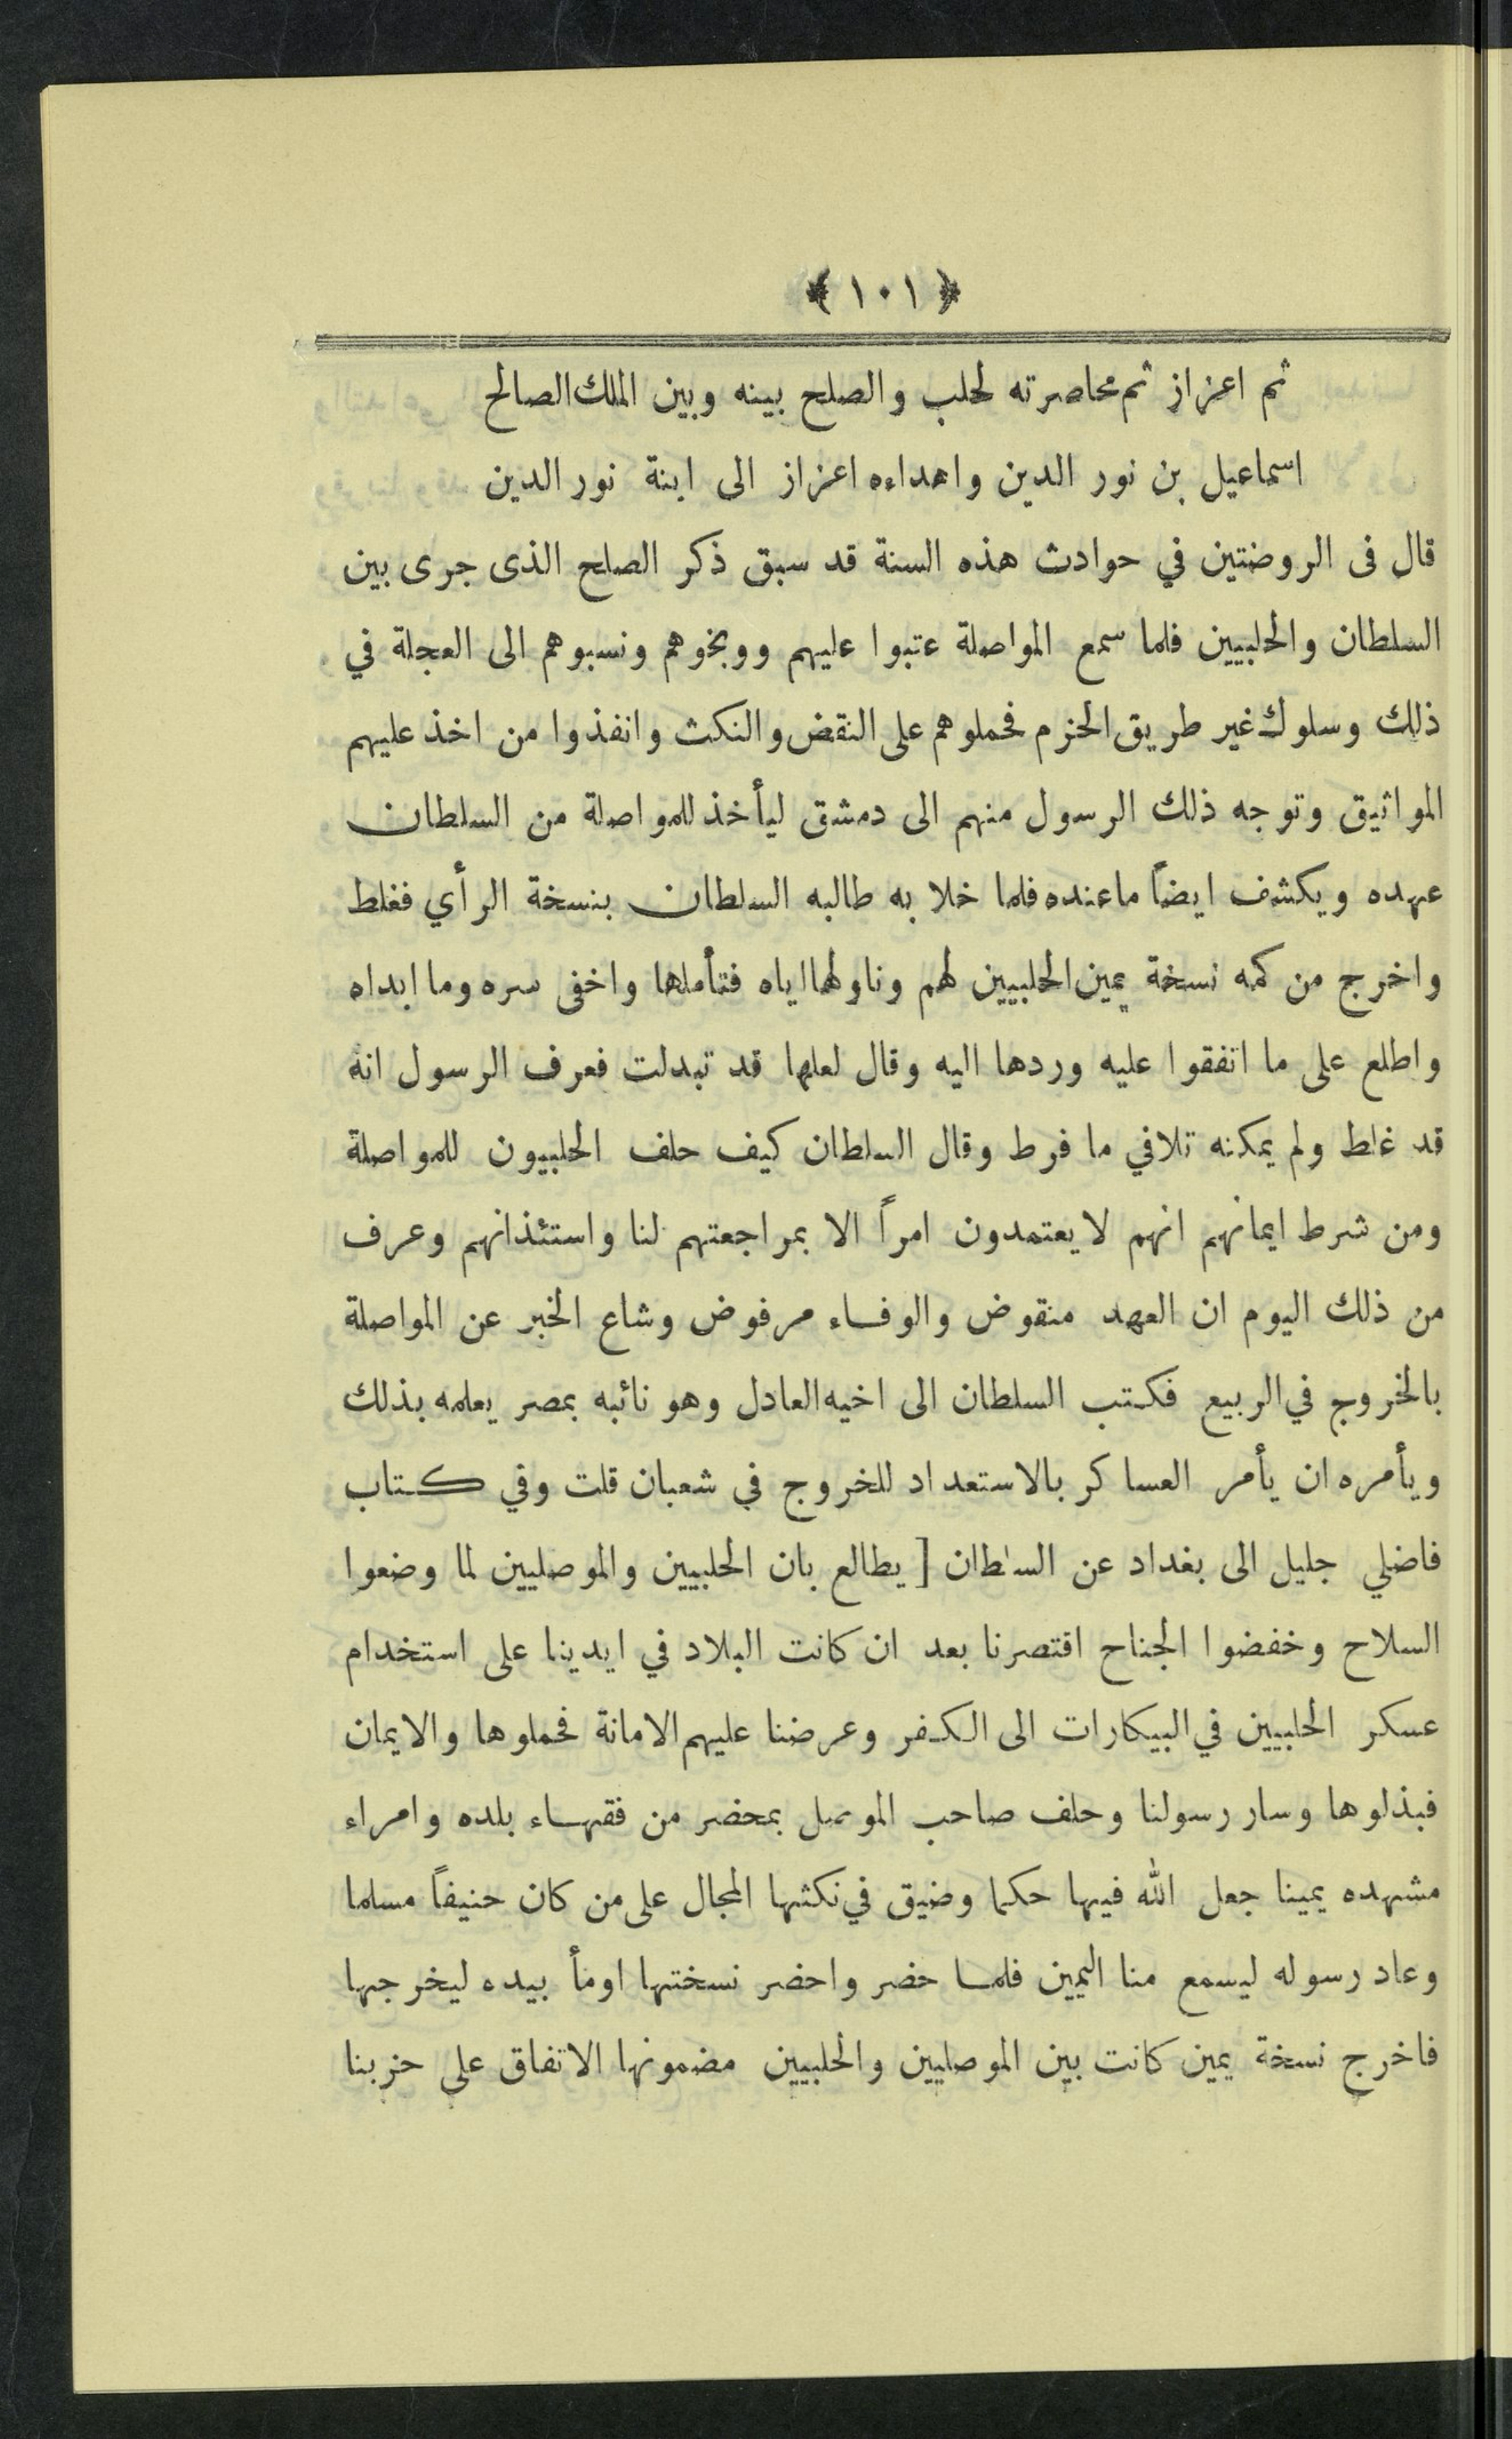 ﴿ ١٠١ ﴾
ثم اعزاز ثم محاصرته لحلب والصلح بينه وبين الملك الصالح
اسماعيل بن نور الدين واهداءه اعزاز الى ابنة نور الدين
قال فى الروضتين في حوادث هذه السنة قد سبق ذكر الصلح الذى جرى بين
السلطان والحلبيين فلما سمع المواصلة عتبوا عليهم ووبخوهم ونسبوهم الى العجلة في
ذلك وسلوك غير طريق الحزم فحملوهم على النقض والنكث وانفذوا من اخذ عليهم
المواثيق وتوجه ذلك الرسول منهم الى دمشق ليأخذ للمواصلة من السلطان
عهده ويكشف ايضاً ماعنده فلما خلا به طالبه السلطان بنسخة الرأي فغلط
واخرج من كمه نسخة يمين الحلبيين لهم وناولها اياه فتأملها واخفى سره وما ابداه
واطلع على ما اتفقوا عليه وردها اليه وقال لعلها قد تبدلت فعرف الرسول انه
قد غلط ولم يمكنه تلافي ما فرط وقال السلطان كيف حلف الحلبيون للمواصلة
ومن شرط ايمانهم انهم لا يعتمدون امراً الا بمراجعتهم لنا واستئذانهم وعرف
من ذلك اليوم ان العهد منقوض والوفاء مرفوض وشاع الخبر عن المواصلة
بالخروج في الربيع فكتب السلطان الى اخيه العادل وهو نائبه بمصر يعلمه بذلك
ويأمره ان يأمر العساكر بالاستعداد للخروج في شعبان قلت وفي كتاب
فاضلي جليل الى بغداد عن السلطان [ يطالع بان الحلبيين والموصليين لما وضعوا
السلاح وخفضوا الجناح اقتصرنا بعد ان كانت البلاد في ايدينا على استخدام
عسكر الحلبيين في البيكارات الى الكفر وعرضنا عليهم الامانة فحملوها والايمان
فبذلوها وسار رسولنا وحلف صاحب الموصل بمحضر من فقهاء بلده وامراء
مشهده يمينا جعل الله فيها حكما وضيق في نكثها المجال على من كان حنيفاً مسلما
وعاد رسوله ليسمع منا اليمين فلما حضر واحضر نسختها اومأ بيده ليخرجها
فاخرج نسخة يمين كانت بين الموصليين والحلبيين مضمونها الاتفاق على حزبنا